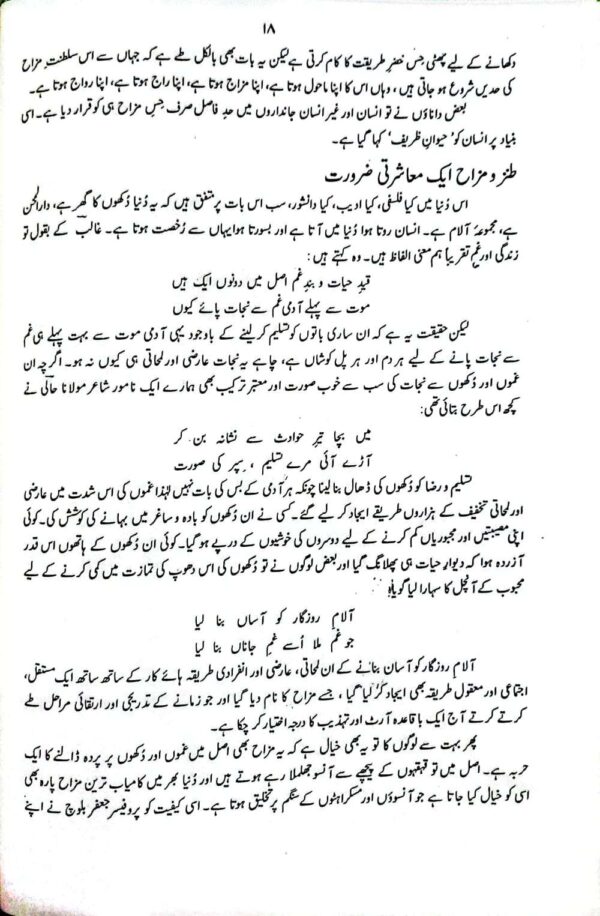 ۱۸
دکھانے کے لیے پھٹی جس خضرِ طریقت کا کام کرتی ہے لیکن یہ بات بھی بالکل طے ہے کہ جہاں سے اس سلطنتِ مزاح
کی حدیں شروع ہو جاتی ہیں، وہاں اس کا اپنا ماحول ہوتا ہے، اپنا مزاج ہوتا ہے، اپنا راج ہوتا ہے، اپنا رواج ہوتا ہے۔
بعض داناؤں نے تو انسان اور غیر انسان جانداروں میں حدِ فاصل صرف حسِ مزاح ہی کو قرار دیا ہے۔ اسی
بنیاد پر انسان کو ’حیوانِ ظریف‘ کہا گیا ہے۔
طنز و مزاح ایک معاشرتی ضرورت
اس دُنیا میں کیا فلسفی، کیا ادیب، کیا دانشور، سب اس بات پر متفق ہیں کہ یہ دُنیا دُکھوں کا گھر ہے، دارالحزن
ہے، مجموعۂ آلام ہے۔ انسان روتا ہوا دُنیا میں آتا ہے اور بسورتا ہوا یہاں سے رُخصت ہوتا ہے۔ غالبؔ کے بقول تو
زندگی اور غم تقریباً ہم معنی الفاظ ہیں۔ وہ کہتے ہیں:
قیدِ حیات و بندِ غم اصل میں دونوں ایک ہیں
موت سے پہلے آدمی غم سے نجات پائے کیوں
لیکن حقیقت یہ ہے کہ ان ساری باتوں کو تسلیم کر لینے کے باوجود یہی آدمی موت سے بہت پہلے ہی غم
سے نجات پانے کے لیے ہر دم اور ہر پل کوشاں ہے، چاہے یہ نجات عارضی اور لمحاتی ہی کیوں نہ ہو۔ اگرچہ ان
غموں اور دُکھوں سے نجات کی سب سے خوب صورت اور معتبر ترکیب بھی ہمارے ایک نامور شاعر مولانا حالیؔ نے
کچھ اس طرح بتائی تھی:
میں بچا تیرِ حوادث سے نشانہ بن کر
آڑے آئی مرے تسلیم ، سپر کی صورت
تسلیم و رضا کو دُکھوں کی ڈھال بنا لینا چونکہ ہر آدمی کے بس کی بات نہیں لہٰذا غموں کی اس شدت میں عارضی
اور لمحاتی تخفیف کے ہزاروں طریقے ایجاد کر لیے گئے۔ کسی نے ان دُکھوں کو بادہ و ساغر میں بہانے کی کوشش کی۔ کوئی
اپنی مصیبتیں اور مجبوریاں کم کرنے کے لیے دوسروں کی خوشیوں کے درپے ہو گیا۔ کوئی ان دُکھوں کے ہاتھوں اس قدر
آزردہ ہوا کہ دیوارِ حیات ہی پھلانگ گیا اور بعض لوگوں نے تو دُکھوں کی اس دھوپ کی تمازت میں کمی کرنے کے لیے
محبوب کے آنچل کا سہارا لیا گویا:
آلامِ روزگار کو آساں بنا لیا
جو غم ملا اُسے غمِ جاناں بنا لیا
آلامِ روزگار کو آسان بنانے کے ان لمحاتی، عارضی اور انفرادی طریقہ ہائے کار کے ساتھ ساتھ ایک مستقل،
اجتماعی اور معقول طریقہ بھی ایجاد کر لیا گیا، جسے مزاح کا نام دیا گیا اور جو زمانے کے تدریجی اور ارتقائی مراحل طے
کرتے کرتے آج ایک باقاعدہ آرٹ اور تہذیب کا درجہ اختیار کر چکا ہے۔
پھر بہت سے لوگوں کا تو یہ بھی خیال ہے کہ یہ مزاح بھی اصل میں غموں اور دُکھوں پر پردہ ڈالنے کا ایک
حربہ ہے۔ اصل میں تو قہقہوں کے پیچھے سے آنسو جھلملا رہے ہوتے ہیں اور دُنیا بھر میں کامیاب ترین مزاح پارہ بھی
اسی کو خیال کیا جاتا ہے جو آنسوؤں اور مسکراہٹوں کے سنگم پر تخلیق ہوتا ہے۔ اسی کیفیت کو پروفیسر جعفر بلوچ نے اپنے